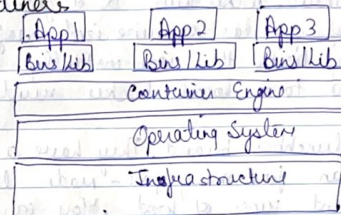 App 1 App 2 App 3
Bins/Lib Bins/Lib Bins/Lib
Container Engine
Operating System
Infrastructure